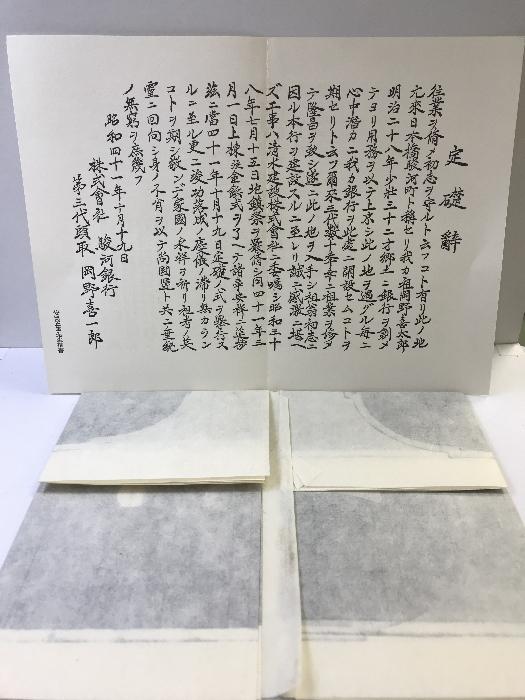 定礎辭
往業ヲ脩メ初志ヲ守ルト云フコト有リ此ノ地
元來日本橋駿河町ト稱セリ我カ祖岡野喜太郎
明治二十八年少壯三十二才郷土ニ銀行ヲ創メ
テヨリ用務ヲ以テ上京シ此ノ地ヲ過グル毎ニ
心中潜カニ我カ銀行ヲ此處ニ開設セムコトヲ
期セリト云フ爾來三代數十春秋ニ祖業ヲ修メ
テ隆昌ヲ致シ遂ニ此ノ地ヲ入手シ祖翁初志ニ
因ル本行ヲ建設スルニ至レリ誠ニ感激ニ堪ヘ
ズ工事ハ清水建設株式會社ニ委嘱シ昭和三十
八年七月十五日地鎮祭ヲ嚴脩シ同四十一年三
月一日上棟鋲金鋲式ヲ了ヘテ諸事安祥ニ進捗
茲ニ當四十一年十月十九日定礎ノ式ヲ擧行ス
ルニ至ル更ニ竣功落成ノ慶儀ノ滞リ無カラン
コトヲ期シ敬ンデ家國ノ永祥ヲ祈リ祖考ノ英
靈ニ回向シ身ノ不肖ヲ以テ尚国竪ト共ニ業統
ノ無窮ヲ庶幾フ
昭和四十一年十月十九日
株式會社 駿河銀行
第三代頭取 岡野喜一郎